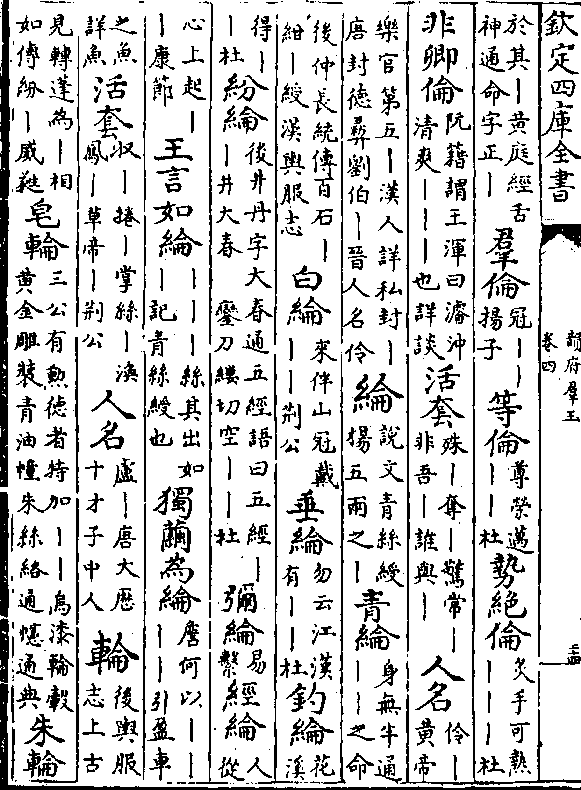 欽定四庫全書
韻府羣玉
卷四
於其｜黄庭經舌神通命字正｜｜羣倫冠｜｜揚子等倫尊榮邁｜｜杜勢絶倫炙手可熱｜｜｜杜
非卿倫阮籍謂王渾曰濬沖清爽｜｜｜也詳談活套殊｜奪｜驚常｜非吾｜誰與｜人名伶｜黄帝
樂官第五｜漢人詳私封｜唐封德彛劉伯｜晉人名伶綸說文青絲綬楊五兩之｜青綸身無半通｜｜之命
後仲長統傳百石｜紺｜綬漢輿服志白綸來伴山冠戴｜｜荆公垂綸勿云江漢有｜｜杜釣綸花溪
得｜｜杜紛綸後井丹字大春通五經語曰五經｜｜井大春鑾刀縷切空｜｜杜彌綸易繫經綸人從
心上起｜｜康節王言如綸｜｜｜｜絲其出如｜記青絲綬也獨繭為綸詹何以｜｜｜｜引盈車
之魚詳魚活套収｜捲｜掌絲｜渙鳳｜草帝｜荆公人名盧｜唐大歴十才子中人輪後輿服志上古
見轉蓬為｜相如傳紛｜威蕤皂輪三公有勲德者特加｜｜烏漆輪轂黄金雕裝青油幢朱絲絡通幰通典朱輪